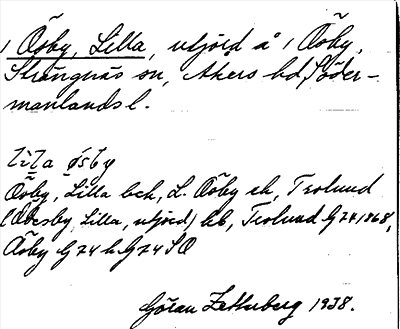 1 Åsby, Lilla, utjord å 1 Åsby,
Strängnäs sn, Åkers hd, Söder-
manlands l.
lìl̀a ósby
Åsby, Lilla bch, L. Åsby ek, Trolund
(Åbesby, Lilla, utjord) hb, Trolund G74 1868,
Åsby G74 h. G74 SO
Göran Zetterberg 1938.